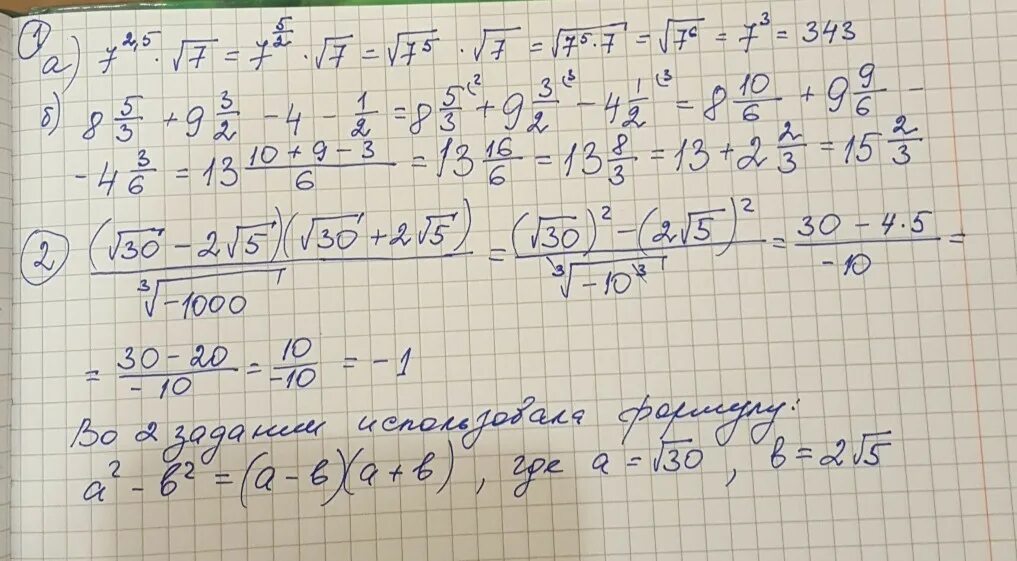 ① а) 7^{2,5} · √7 = 7^{5/2} · √7 = √(7⁵) · √7 = √(7⁵ · 7) = √(7⁶) = 7³ = 343
б) 8 5/3 + 9 3/2 - 4 - 1/2 = 8 5/3^{(2} + 9 3/2^{(3} - 4 1/2^{(3} = 8 10/6 + 9 9/6 -
- 4 3/6 = 13 (10 + 9 - 3)/6 = 13 16/6 = 13 8/3 = 13 + 2 2/3 = 15 2/3
② ((√30 - 2√5)(√30 + 2√5))/∛(-1000) = ((√30)² - (2√5)²)/∛(-10³) = (30 - 4·5)/(-10) =
= (30 - 20)/(-10) = 10/(-10) = -1
Во 2 задании использовала формулу:
a² - в² = (a - в)(a + в), где a = √30, в = 2√5